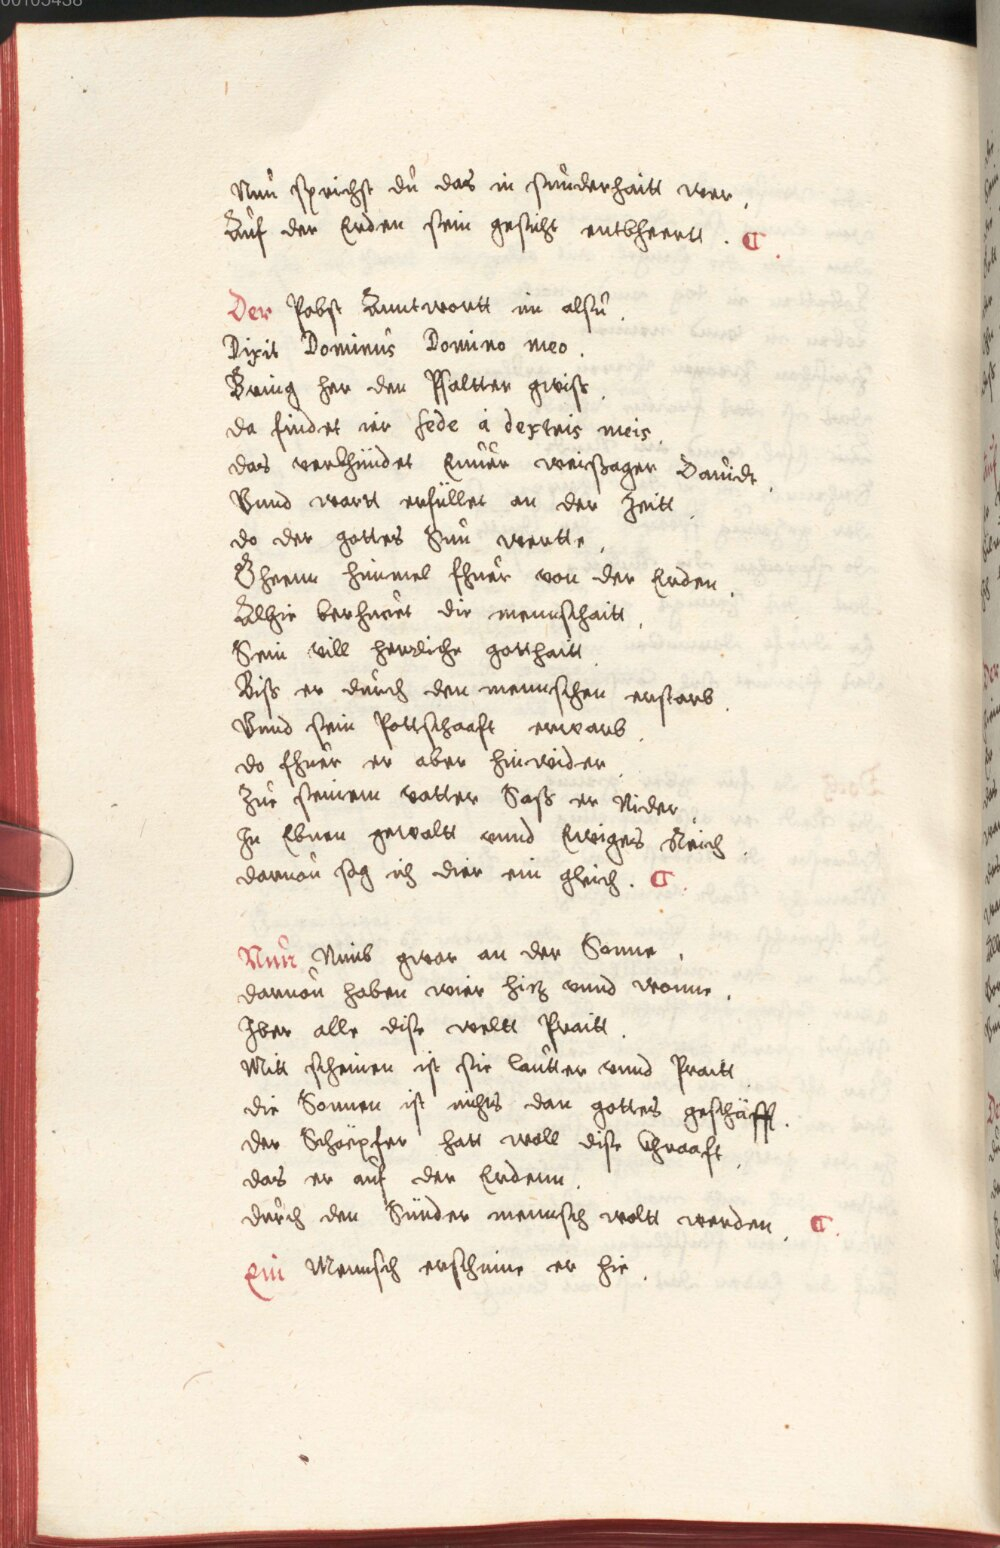 00105438
Nun sprichst du das in sunderhaitt wer.
Auf der Erden sein gesicht entbheertt. ¶.
Der Pabst Anntwortt im alsu.
Dixit Dominus Domino meo.
Bring her den Psaltter gwiss.
da findet ier sede à dextris meis.
das verkhündet Ennuer weissager Dauidt.
Vnnd wartt erfüllet an der Zeitt.
do der gottes Sun wertte.
Gheenn himmel fhuer von der Erden.
Alhie berhuert die mennschaitt.
Sein vill herrliche gotthaitt.
Biss er durch den mennschen erstarb.
Vnnd sein Pottschaafft erwarb.
do fhuer er aber hinwider.
Zue seinem vatter Sass er Nider.
In Ebnen gewaltt vnnd Ewiges Reich.
darnon sag ich dier ein gleich. ¶.
Nun Nimb gwar an der Sonne.
darnon haben wier hitz vnnd wonne.
Iber alle dise weltt Praitt.
Mitt scheinen ist sie lautter vnnd Praitt.
die Sonnen ist nichts dan gottes geschäfft.
der Schöepfer hatt woll dise khraafft.
das er auf der Erdenn.
durch den Sünder mennsch woltt werden. ¶.
Ein Mennsch erscheine er hie.